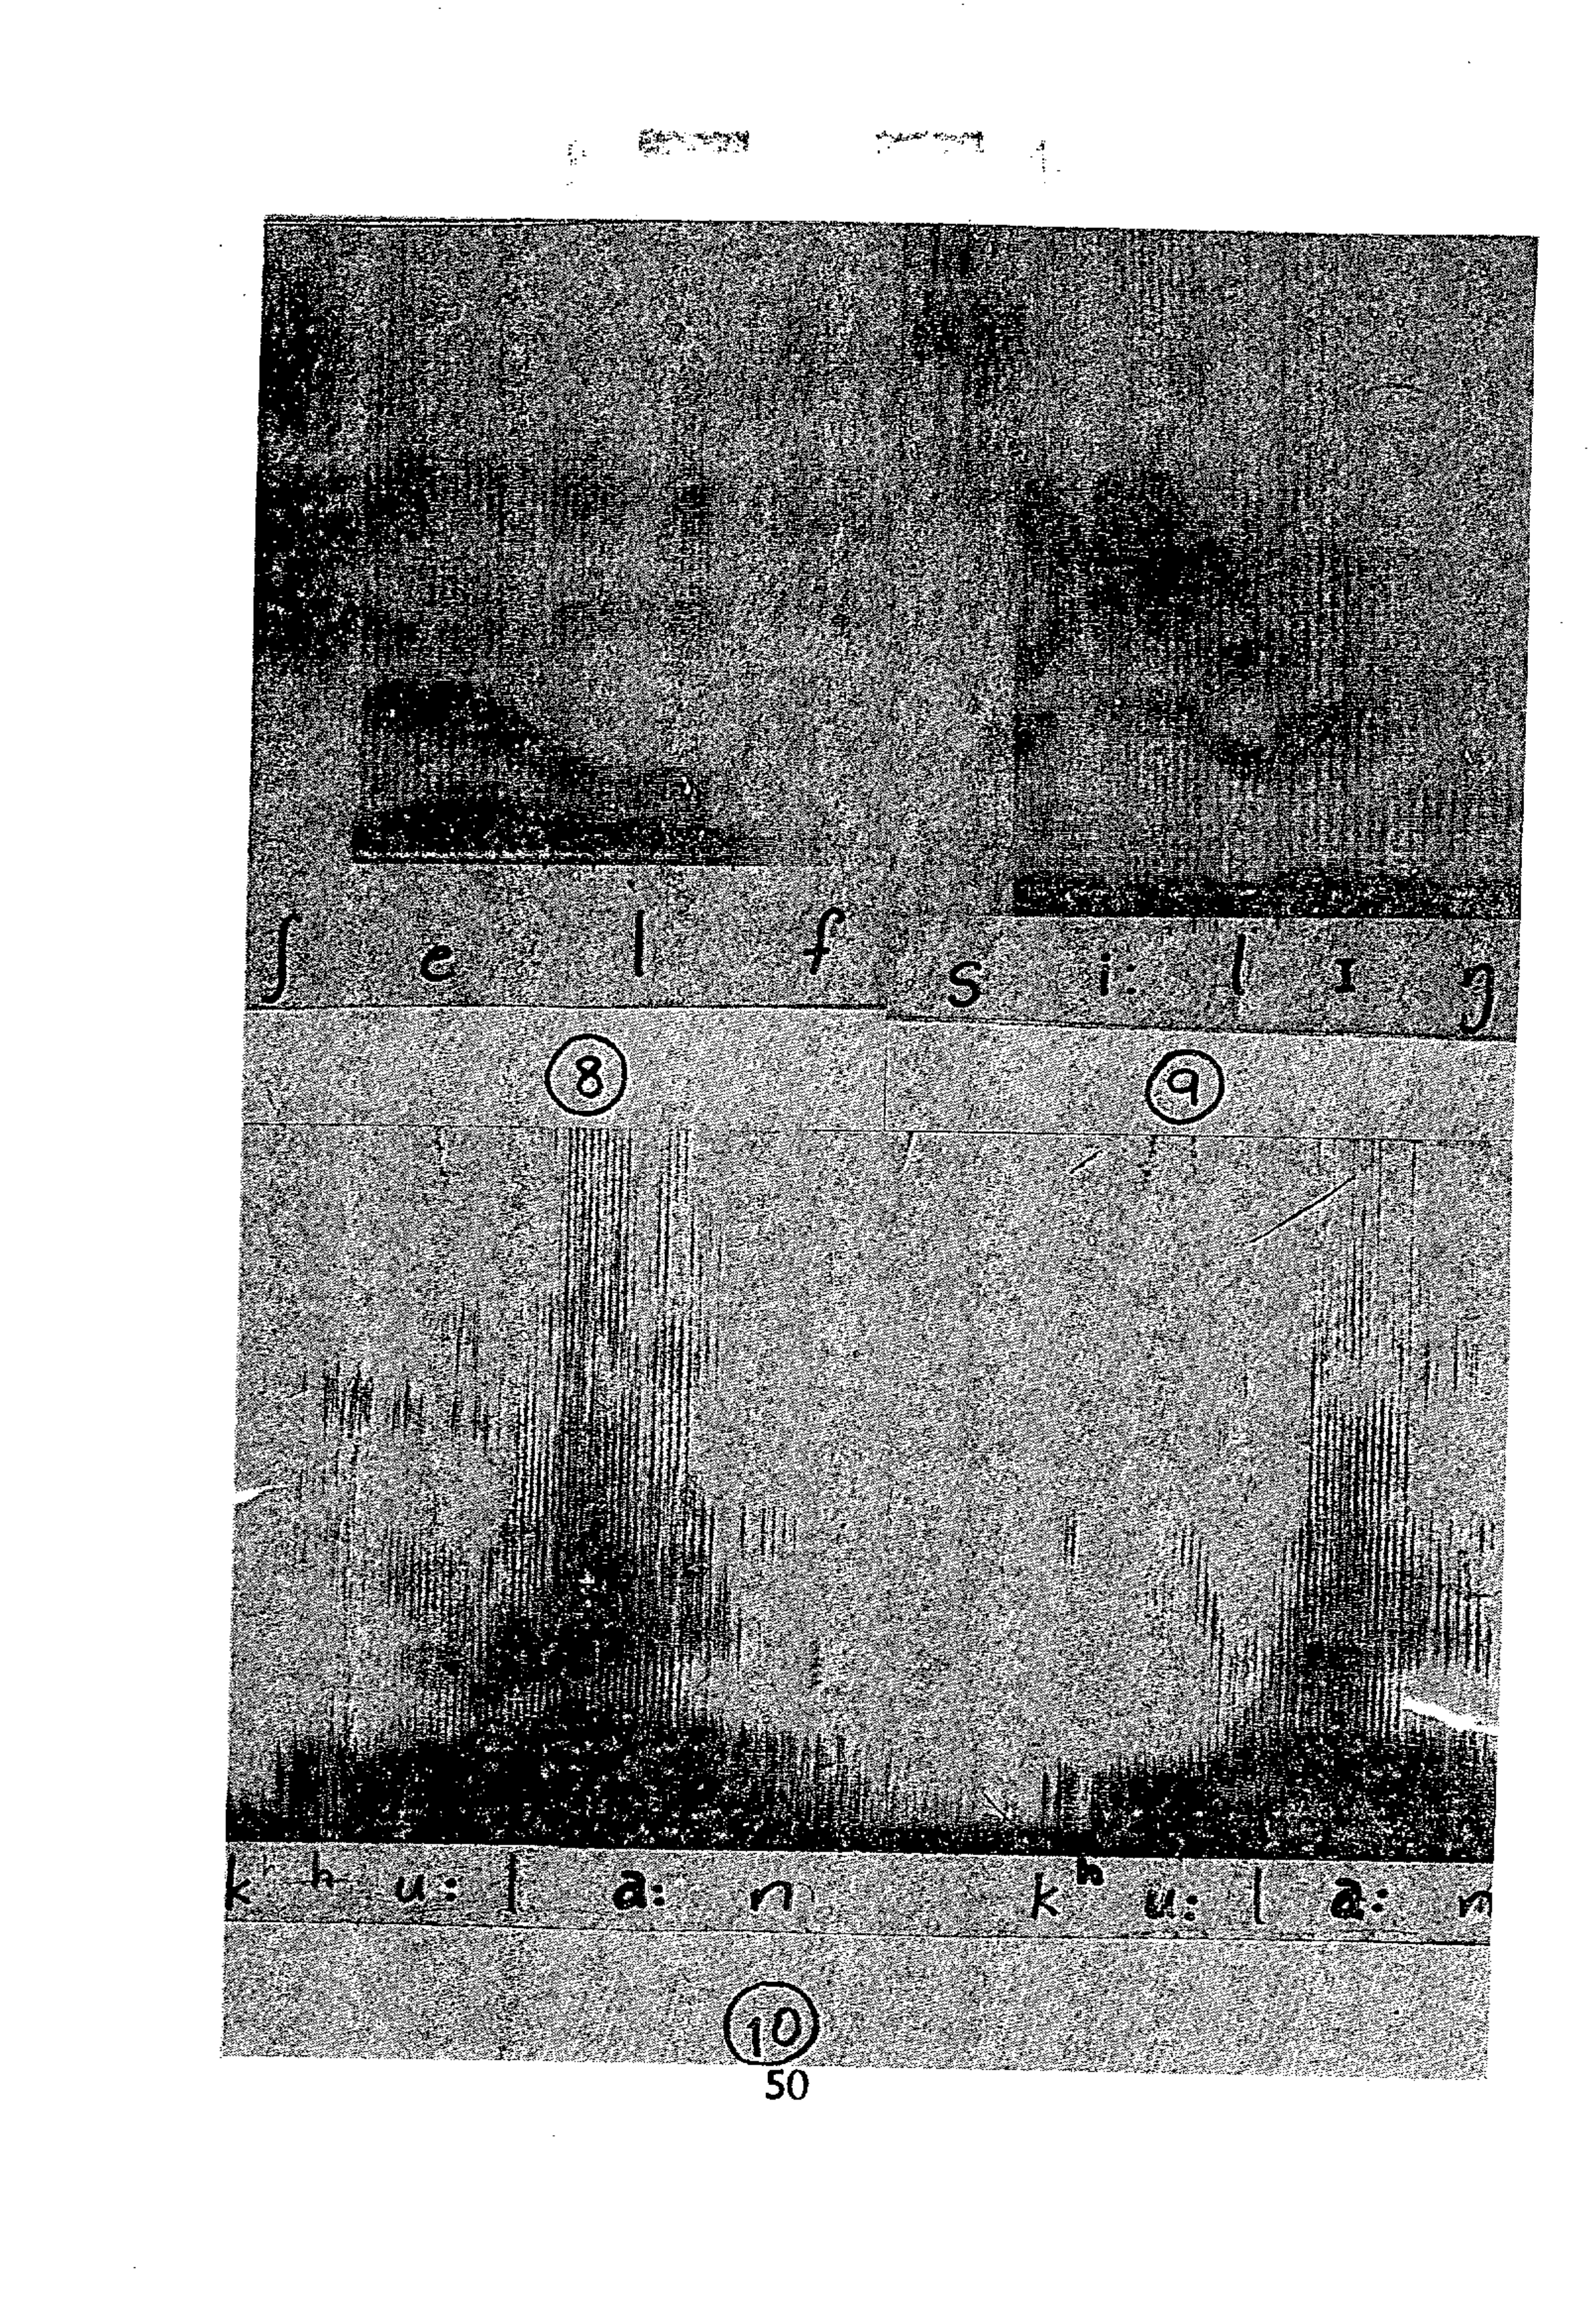 ʃ e l f
s i: l ɪ ŋ
8
9
kʰ u: l a: n kʰ u: l a: n
10
50